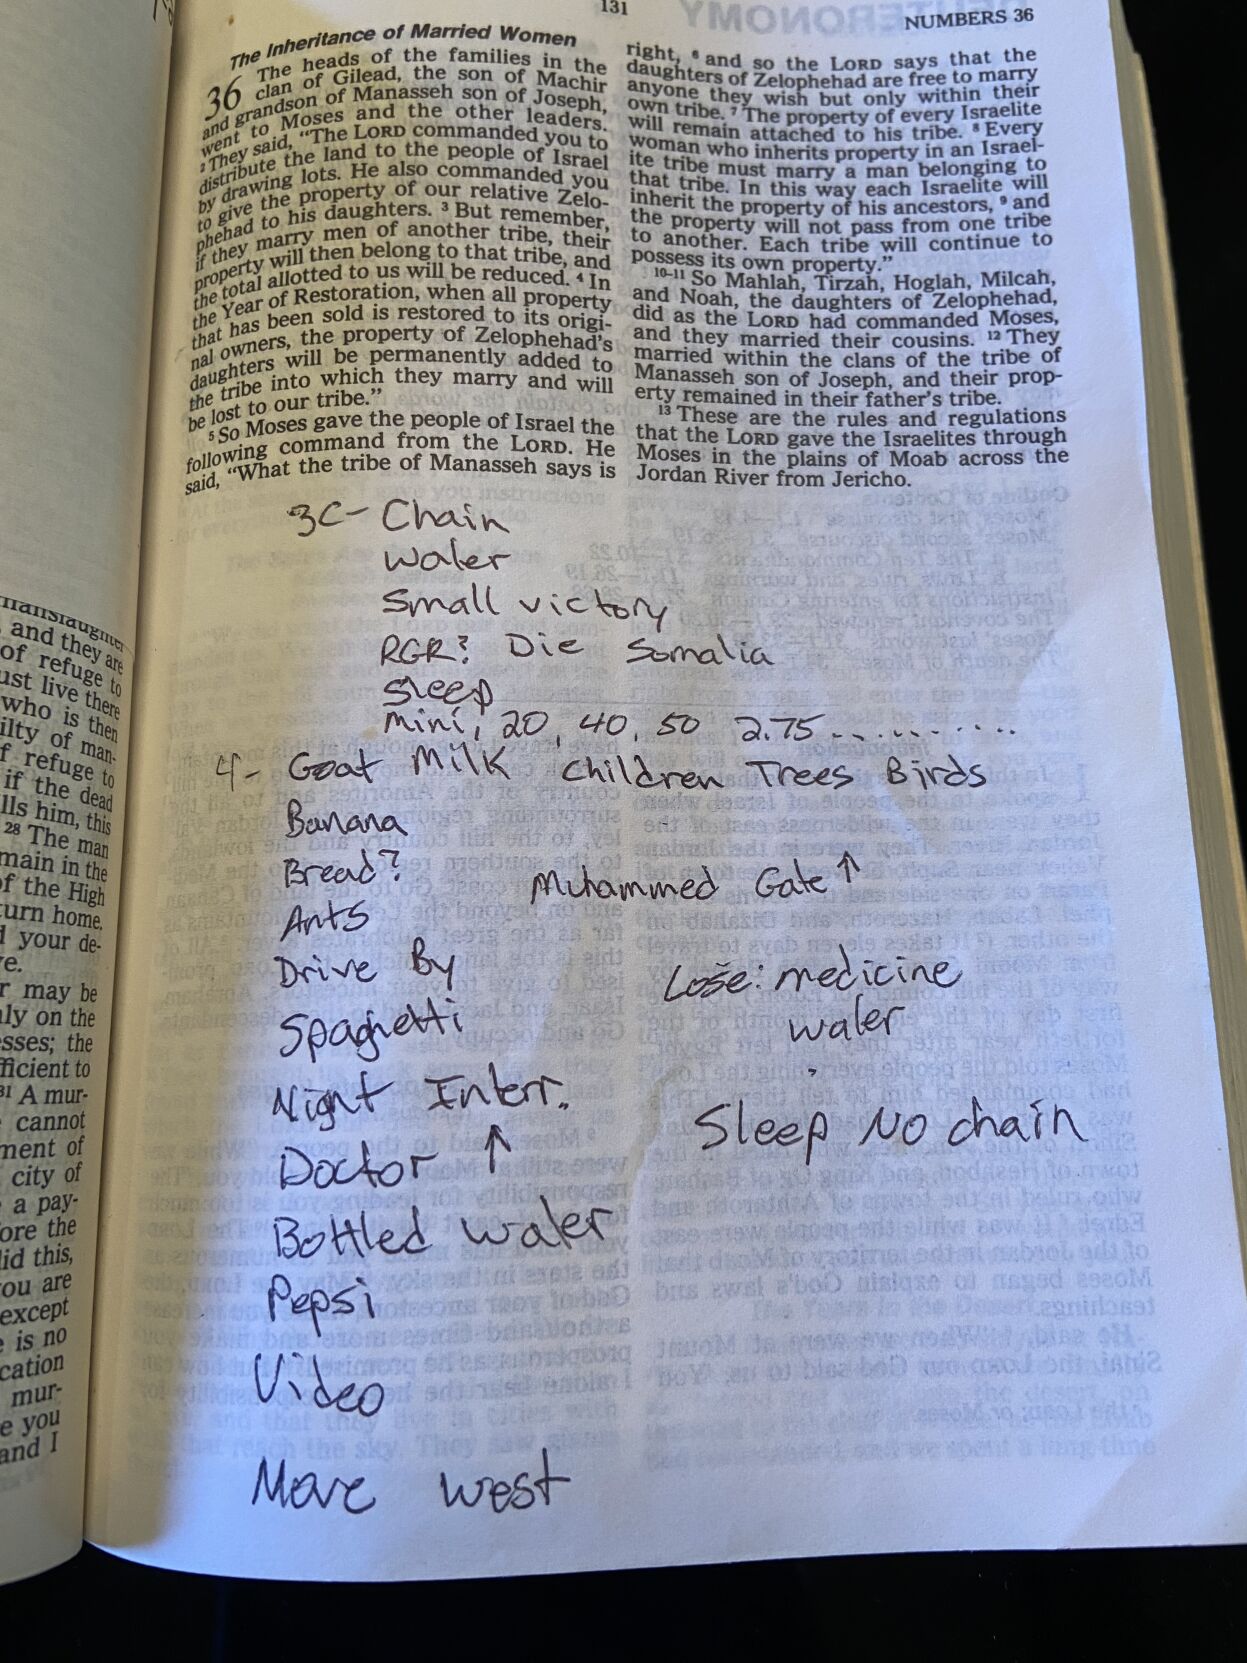 131
NUMBERS 36
The Inheritance of Married Women
36 The heads of the families in the
clan of Gilead, the son of Machir
and grandson of Manasseh son of Joseph,
went to Moses and the other leaders.
2 They said, “The LORD commanded you to
distribute the land to the people of Israel
by drawing lots. He also commanded you
to give the property of our relative Zelo-
phehad to his daughters. 3 But remember,
if they marry men of another tribe, their
property will then belong to that tribe, and
the total allotted to us will be reduced. 4 In
the Year of Restoration, when all property
that has been sold is restored to its origi-
nal owners, the property of Zelophehad's
daughters will be permanently added to
the tribe into which they marry and will
be lost to our tribe.”
5 So Moses gave the people of Israel the
following command from the LORD. He
said, “What the tribe of Manasseh says is
right, 6 and so the LORD says that the
daughters of Zelophehad are free to marry
anyone they wish but only within their
own tribe. 7 The property of every Israelite
will remain attached to his tribe. 8 Every
woman who inherits property in an Israel-
ite tribe must marry a man belonging to
that tribe. In this way each Israelite will
inherit the property of his ancestors, 9 and
the property will not pass from one tribe
to another. Each tribe will continue to
possess its own property.”
10-11 So Mahlah, Tirzah, Hoglah, Milcah,
and Noah, the daughters of Zelophehad,
did as the LORD had commanded Moses,
and they married their cousins. 12 They
married within the clans of the tribe of
Manasseh son of Joseph, and their prop-
erty remained in their father's tribe.
13 These are the rules and regulations
that the LORD gave the Israelites through
Moses in the plains of Moab across the
Jordan River from Jericho.
3C- Chain
water
Small victory
RGR? Die Somalia
Sleep
Mini, 20, 40, 50 2.75 ..........
4- Goat Milk Children Trees Birds
Banana
Bread?
Muhammed Gate ↑
Ants
Drive By
Lose: medicine
Spaghetti
water
Night Interr.
Sleep No chain
Doctor ↑
Bottled water
Pepsi
Video
Move west
and they are
of refuge to
ust live there
who is then
ilty of man-
f refuge to
if the dead
lls him, this
28 The man
main in the
of the High
turn home.
d your de-
ve.
r may be
nly on the
esses; the
fficient to
31 A mur-
cannot
ment of
city of
a pay-
fore the
did this,
you are
except
e is no
cation
mur-
e you
and I